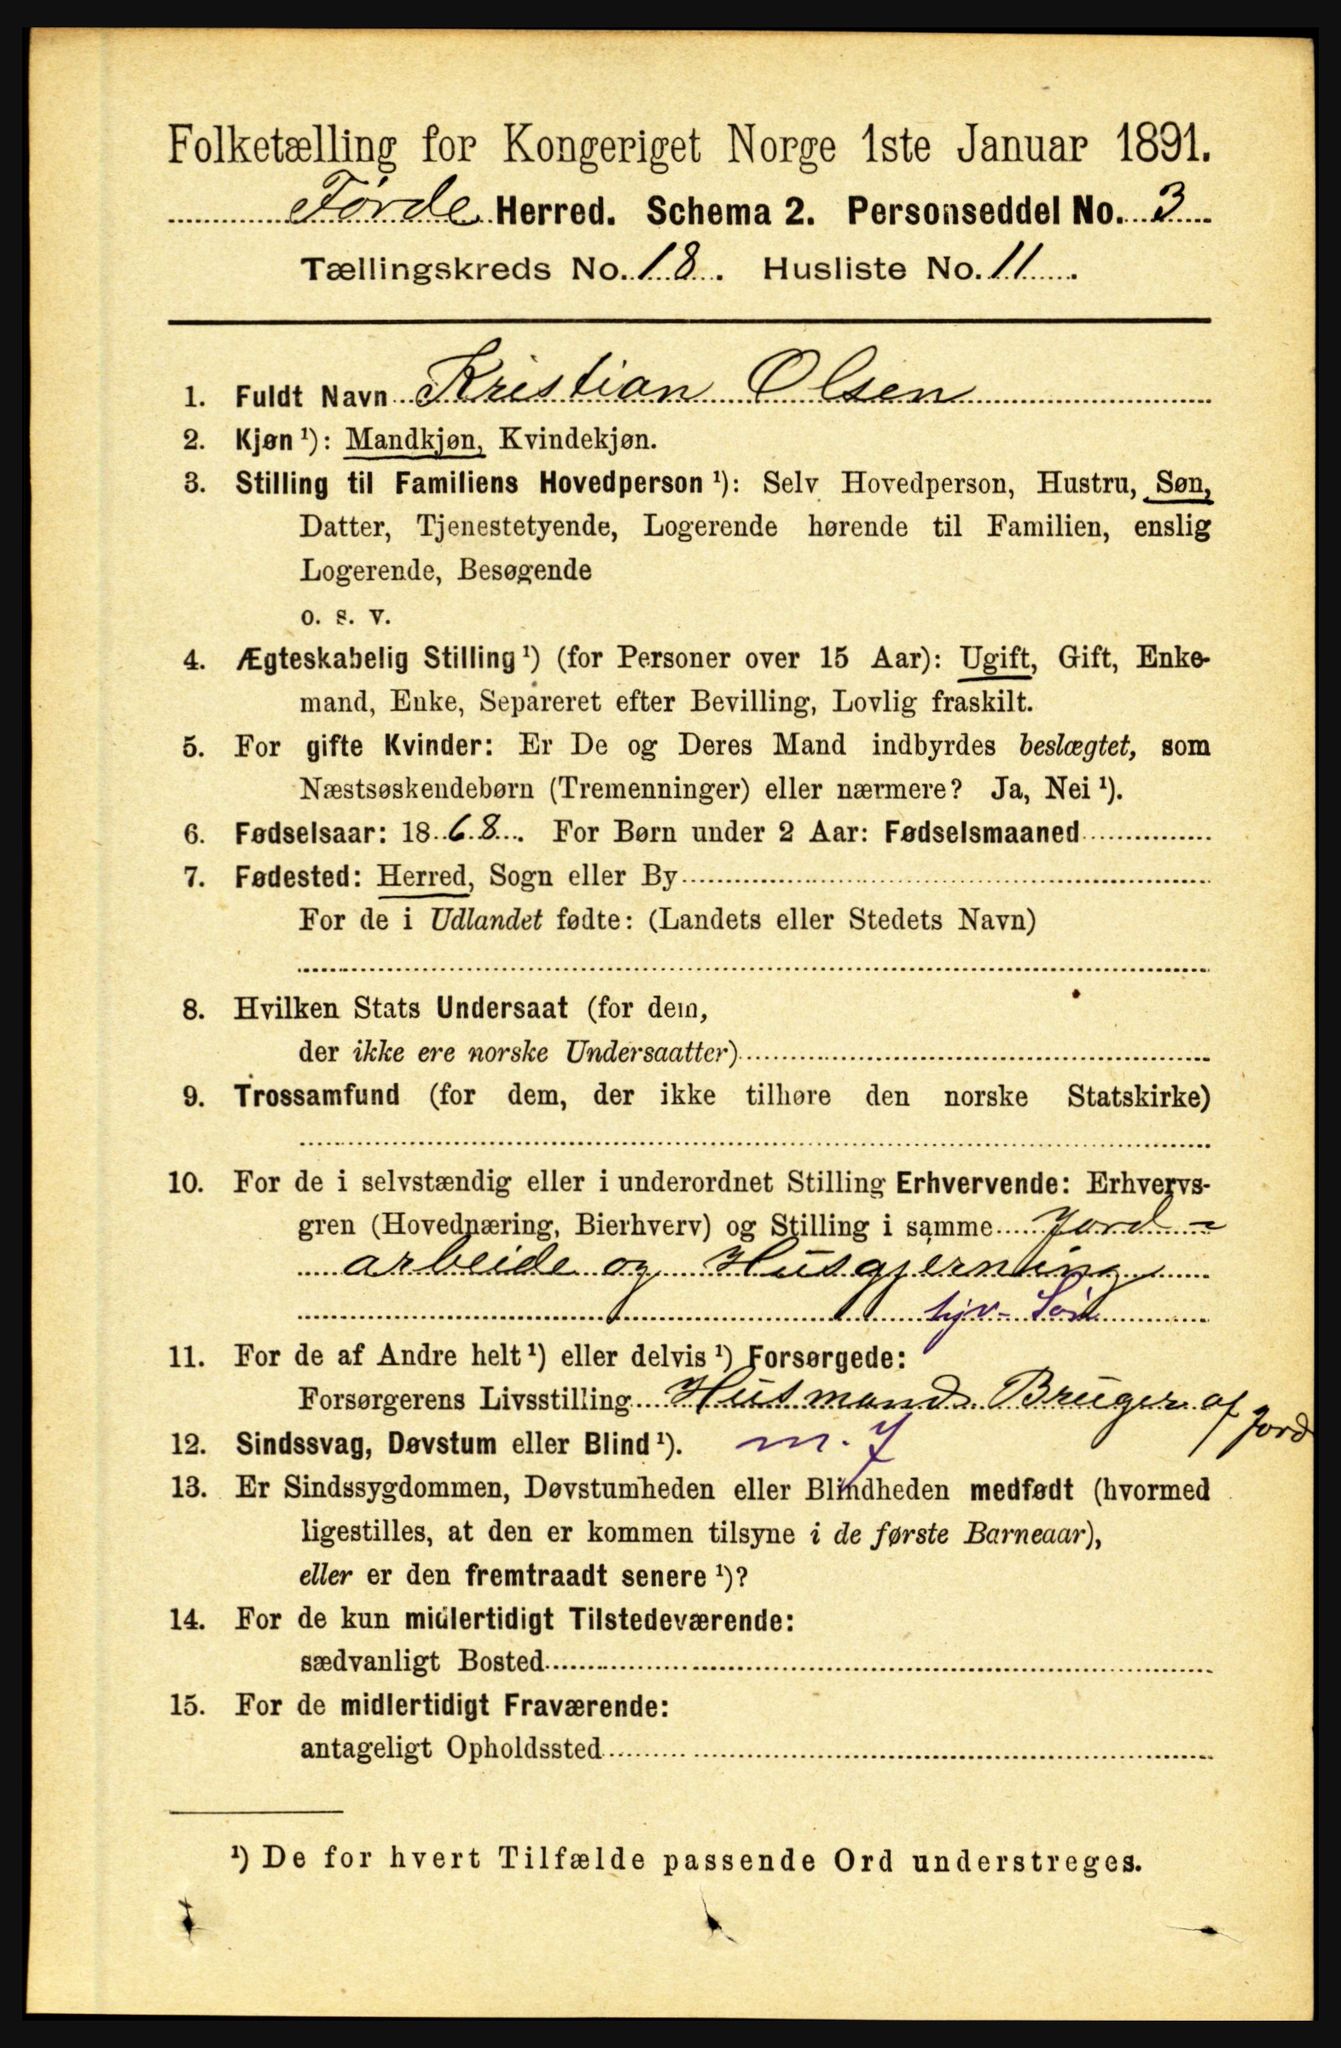 Folketælling for Kongeriget Norge 1ste Januar 1891.
Førde Herred. Schema 2. Personseddel No. 3
Tællingskreds No. 18. Husliste No. 11.
1. Fuldt Navn Kristian Olsen
2. Kjøn ¹): Mandkjøn, Kvindekjøn.
3. Stilling til Familiens Hovedperson ¹): Selv Hovedperson, Hustru, Søn,
Datter, Tjenestetyende, Logerende hørende til Familien, enslig
Logerende, Besøgende
o. s. v.
4. Ægteskabelig Stilling ¹) (for Personer over 15 Aar): Ugift, Gift, Enke-
mand, Enke, Separeret efter Bevilling, Lovlig fraskilt.
5. For gifte Kvinder: Er De og Deres Mand indbyrdes beslægtet, som
Næstsøskendebørn (Tremenninger) eller nærmere? Ja, Nei ¹).
6. Fødselsaar: 1868. For Børn under 2 Aar: Fødselsmaaned
7. Fødested: Herred, Sogn eller By
For de i Udlandet fødte: (Landets eller Stedets Navn)
8. Hvilken Stats Undersaat (for dem,
der ikke ere norske Undersaatter)
9. Trossamfund (for dem, der ikke tilhøre den norske Statskirke)
10. For de i selvstændig eller i underordnet Stilling Erhvervende: Erhvervs-
gren (Hovednæring, Bierhverv) og Stilling i samme Jord-
arbeide og Husgjerning
hjv. Søn
11. For de af Andre helt ¹) eller delvis ¹) Forsørgede:
Forsørgerens Livsstilling Husmand Bruger af Jord
12. Sindssvag, Døvstum eller Blind ¹). m. J
13. Er Sindssygdommen, Døvstumheden eller Blindheden medfødt (hvormed
ligestilles, at den er kommen tilsyne i de første Barneaar),
eller er den fremtraadt senere ¹)?
14. For de kun midlertidigt Tilstedeværende:
sædvanligt Bosted
15. For de midlertidigt Fraværende:
antageligt Opholdssted
¹) De for hvert Tilfælde passende Ord understreges.